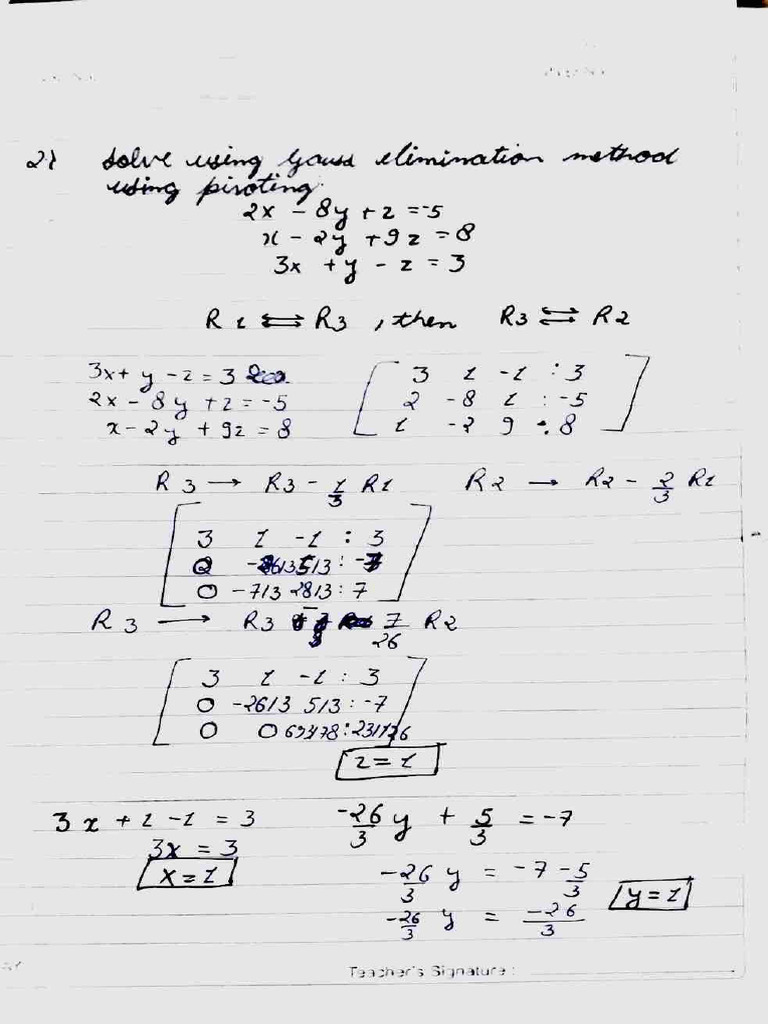 2) Solve using Gauss elimination method
using pivoting.
2x - 8y + z = -5
x - 2y + 9z = 8
3x + y - z = 3
R1 ⇌ R3, then R3 ⇌ R2
3x + y - z = 3 [3 1 -1 : 3
2x - 8y + z = -5 2 -8 1 : -5
x - 2y + 9z = 8 1 -2 9 : 8]
R3 → R3 - 1/3 R1 R2 → R2 - 2/3 R1
[3 1 -1 : 3
0 5/3 : -7
0 -7/3 28/3 : 7]
R3 → R3 - 7/26 R2
[3 1 -1 : 3
0 -26/3 5/3 : -7
0 0 : 231/26]
z = 1
3x + 1 - 1 = 3 -26/3 y + 5/3 = -7
3x = 3 -26/3 y = -7 - 5/3
x = 1 y = 1
-26/3 y = -26/3
Teacher's Signature :